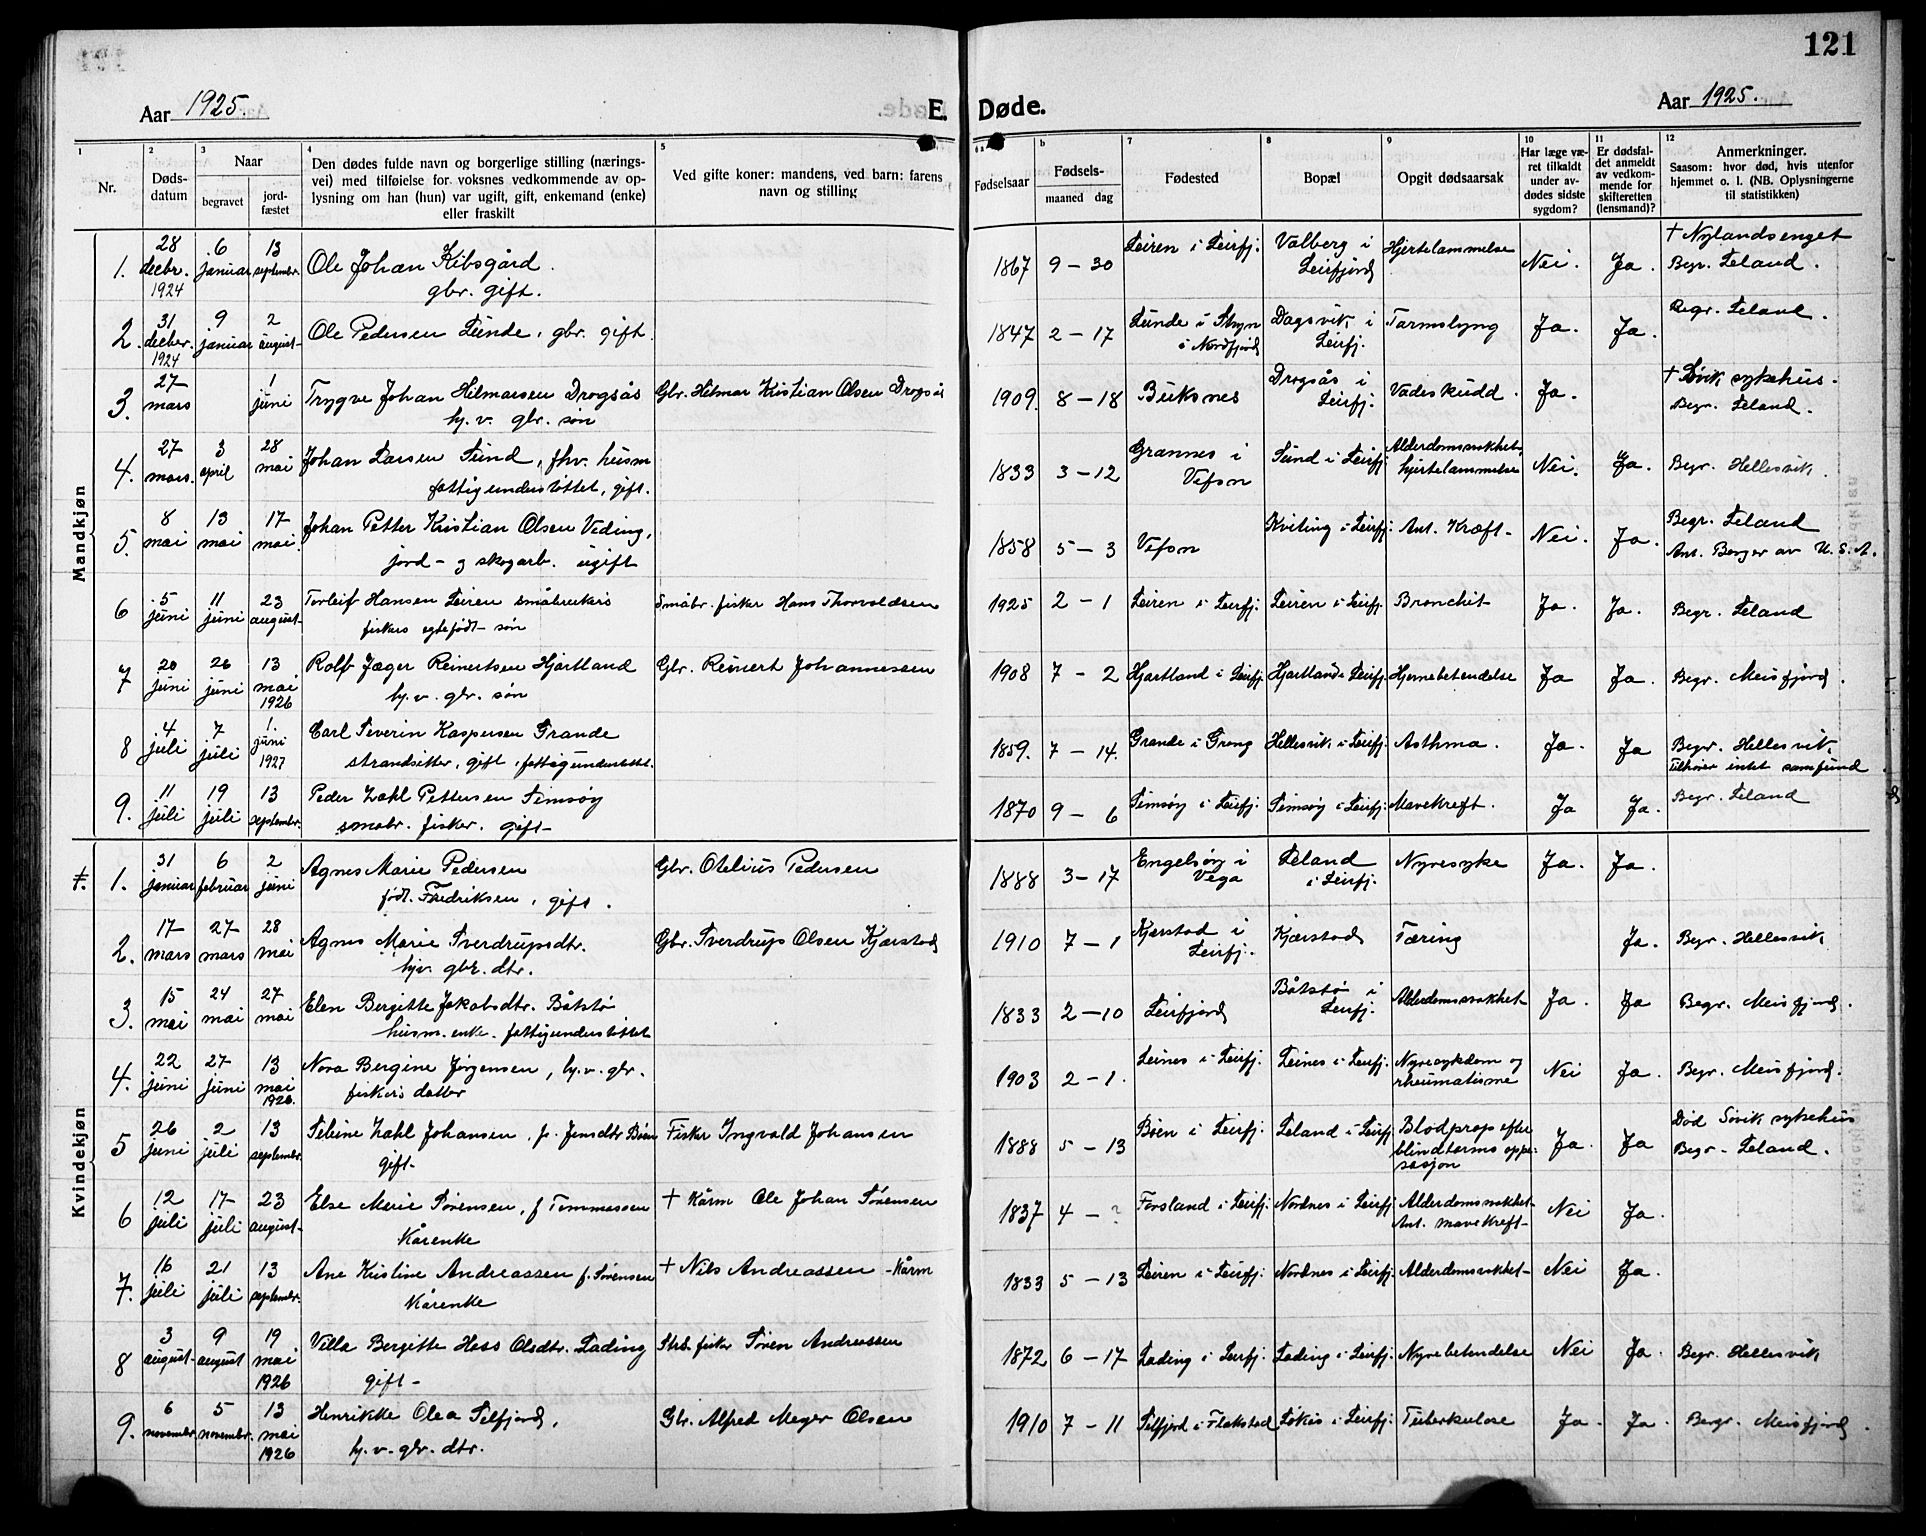 121
Aar 1925.
E. Døde.
Aar 1925.
1 Nr.
2 Døds-datum
3 Naar
begravet
jord-fæstet
4 Den dødes fulde navn og borgerlige stilling (nærings-
vei) med tilføielse for voksnes vedkommende av op-
lysning om han (hun) var ugift, gift, enkemand (enke)
eller fraskilt
5 Ved gifte koner: mandens, ved barn: farens
navn og stilling
6 a Fødselsaar
b Fødsels-
maaned dag
7 Fødested
8 Bopæl
9 Opgit dødsaarsak
10 Har læge væ-
ret tilkaldt
under av-
dødes sidste
sygdom?
11 Er dødsfal-
det anmeldt
av vedkom-
mende for
skifteretten
(lensmand)?
12 Anmerkninger.
Saasom: hvor død, hvis utenfor
hjemmet o. l. (NB. Oplysningerne
til statistikken)
Mandkjøn
1. 28 decbr. 1924 6 januar 13 septembr. Ole Johan Kibsgård. gbr. gift. 1867 9 - 30 Leiren i Leirfj. Valberg i Leirfjord Hjertelammelse Nei. Ja. + Nylandsenget Begr. Leland.
2. 31 decbr. 1924 9 januar 2 august Ole Pedersen Lunde, gbr. gift. 1847 2 - 17 Lunde i Stryn i Nordfjord Dagsvik i Leirfj. Tarmslyng Ja. Ja. Begr. Leland.
3. 27 mars 1 juni Trygve Johan Hilmarsen Drogsås hj. v. gbr. søn Gbr. Hilmar Kristian Olsen Drogsås 1909. 8 - 18 Buksnes Drogsås i Leirfj. Vadeskudd. Ja. + Søvik sykehus. Begr. Leland.
4. 27 mars. 3 april 28 mai Johan Larsen Sund, fhv. husm fattigunderstøttet, gift. 1833 3 - 12 Grannes i Vefsn Sund i Leirfj Alderdomssvakhet, hjertelammelse Nei. Ja. Begr. Hellesvik.
5. 8 mai 13 mai 17 mai. Johan Petter Kristian Olsen Veding, jord- og skogarb. ugift 1858 5 - 3 Vefsn Kviting i Leirfj. Ant. Kræft- Nei. Ja. Begr. Leland Ant. Borger av U.S.A.
6 5 juni 11 juni 23 august Torleif Hansen Leiren småbruker fiskers egtefødt søn Småbr. fisker Hans Thorvaldsen 1925 2 - 1 Leiren i Leirfj. Leiren i Leirfj. Bronchit Ja. Ja. Begr. Leland
7 20 juni 26 juni 13 mai 1926 Rolf Jæger Reinertsen Hjartland hj. v. gbr. søn Gbr. Reinert Johannessen 1908 7 - 2 Hjartland i Leirfj. Hjartland i Leirfj. Hjernebetendelse Ja Ja. Begr. Meisfjord.
8 4 juli 7 juli 1. juni 1927 Carl Severin Kaspersen Grande strandsitter, gift, fattigunderstøttet. 1859. 7 - 14. Grande i Grong Hellesvik i Leirfj. Asthma. Ja. Ja Begr. Hellesvik. Tilhører intet samfund
9. 11 juli 19 juli 13 septembr. Peder Zahl Pettersen Simsøy småbr. fisker. gift- 1870 9 - 6 Simsøy i Leirfj. Simsøy i Leirfj. Mavekreft. Ja Ja. Begr. Leland
Kvindekjøn
1. 31 januar 6 februar 2 juni Agnes Marie Pedersen født. Fredriksen, gift. Gbr. Otelius Pedersen 1888 3 - 17 Engelsøy i Vega Leland i Leirfj. Nyresyke Ja. Ja.
2. 17 mars 27 mars 28 mai Agnes Marie Sverdrupsdtr. hjv. gbr. dtr. Gbr. Sverdrup Olsen Kjærstad 1910 7 - 1 Kjærstad i Leirfj. Kjærstad Tæring Ja. Begr. Hellesvik
3. 15 mai 24 mai 27 mai Elen Bergitte Jakobsdtr. Båtstø husm. enke. fattigunderstøttet 1833 2 - 10 Leirfjord Båtstø i Leirfj. Alderdomssvakhet Ja. Ja Begr. Meisfjord.
4. 22 juni 27 juni 13 mai 1926. Nora Bergine Jørgensen, hj. v. gbr. fiskers datter 1903 2 - 1. Leines i Leirfj. Leines i Leirfj. Nyresykdom og rheumatisme Nei Ja. Begr. Meisfjord.
5 26 juni 2 juli 13 septembr. Zahl Johansen, f. Jensdtr Bøen gift- Fisker Ingvald Johansen 1888 5 - 13 Bøen i Leirfj. Leland i Leirfj Blodprop efter blindtarms Ja. Ja Død Søvik sykehus Begr. Leland.
6 12 juli 17 juli 23 august Else Merie Sørensen, f Tommassen Kårenke + Kårm Ole Johan Sørensen 1837 4 - ? Forsland i Leirfj. Nordnes i Leirfj Alderdomssvakhet Ant. mavekreft- Nei Ja.
7. 16 juli 21 juli 13 septembr. Ane Kristine Andreassen f. Sørensen Kårenke + Nils Andreassen - Kårm 1833 5 - 13 Leiren i Leirfj. Nordnes i Leirfj. Alderdomssvakhet- Nei Ja.
8 3 august 9 august 19 mai 1926 Villa Bergitte Hass Olsdtr. Lading gift- Strs. fisker Søren Andreassen 1872 6 - 17 Lading i Leirfj. Lading i Leirfj. Nyrebetendelse Nei Ja. Begr. Hellesvik
9. 6 novembr 5 novembr. 13 mai 1926 Henrikke Olea Selfjord, hj. v. gbr. dtr. Gbr. Alfred Meyer Olsen 1910 7 - 11 Selfjord i Flakstad i Leirfj. Tuberkulose Ja. Ja. Begr. Meisfjord.